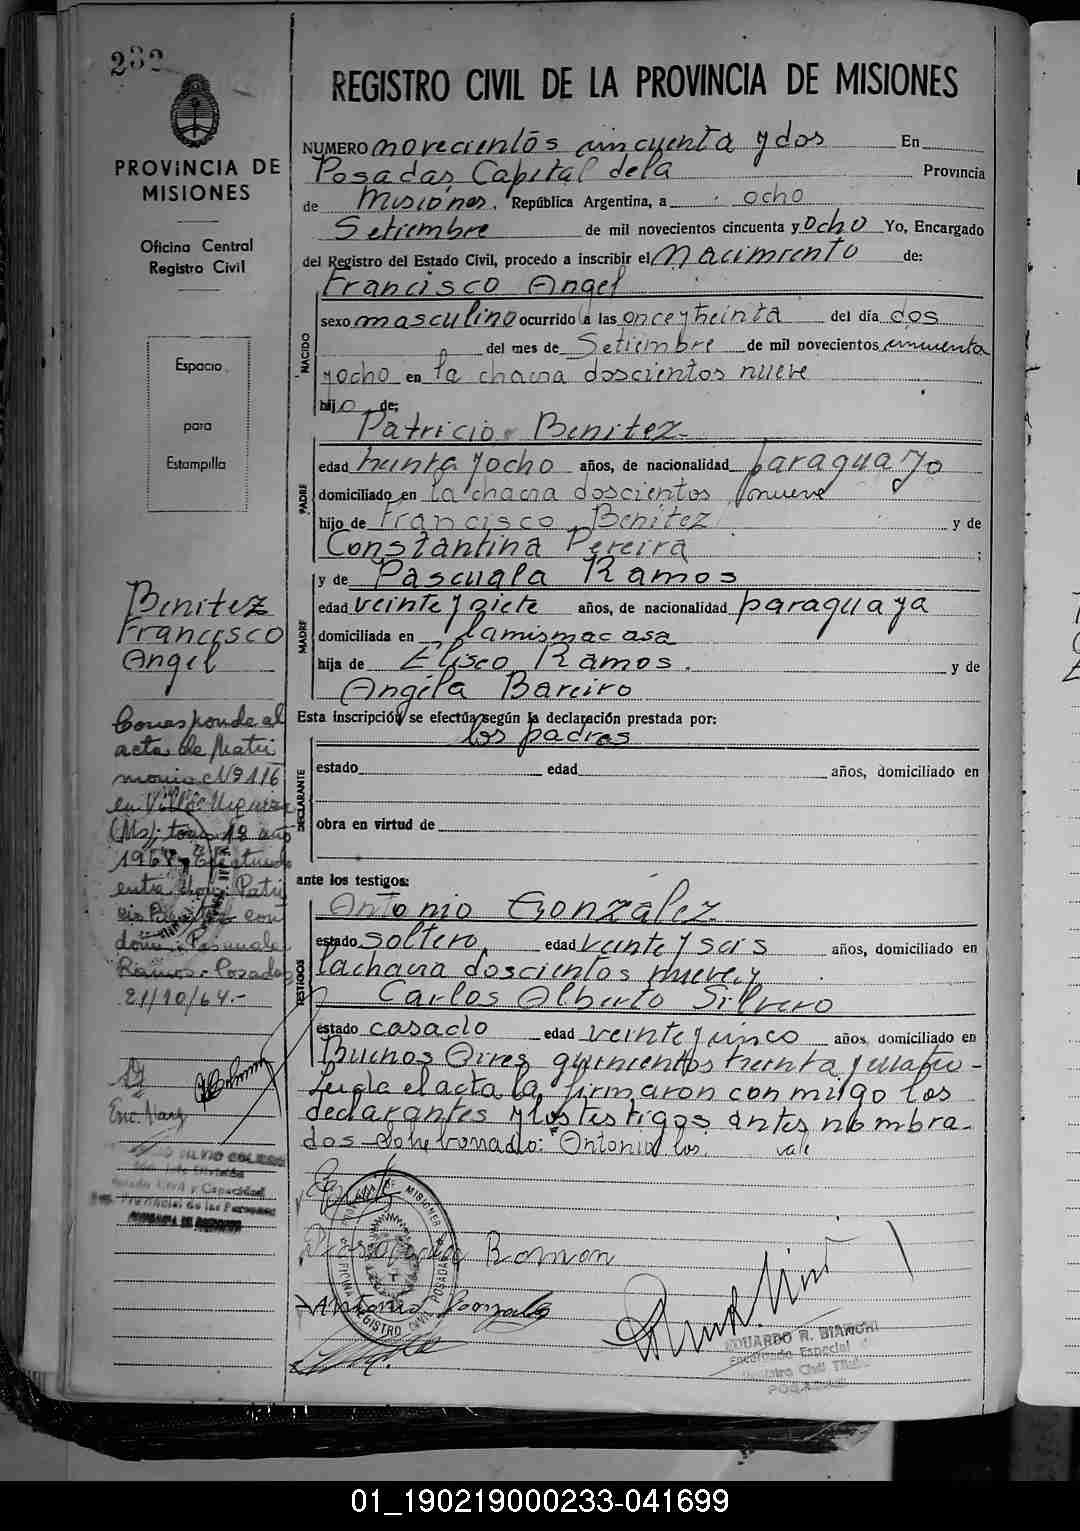 232
PROVINCIA DE
MISIONES
Oficina Central
Registro Civil
Espacio
para
Estampilla
Benitez
Francisco
Angel
Corresponde al
acta de Matri
monio Nº 116
en Villa
(Ms); tomo 18 año
196
entre don: Patri
cio Benitez con
doña: Pascuala
Ramos. Posadas
21/10/64.-
REGISTRO CIVIL DE LA PROVINCIA DE MISIONES
NUMERO novecientos cincuenta y dos En
Posadas Capital de la Provincia
de Misiones, República Argentina, a ocho
Setiembre de mil novecientos cincuenta y ocho Yo, Encargado
del Registro del Estado Civil, procedo a inscribir el Nacimiento de:
Francisco Angel
NACIDO
sexo masculino ocurrido a las once y treinta del día dos
del mes de Setiembre de mil novecientos cincuenta
y ocho en la chacra doscientos nueve
hijo de:
Patricio Benitez
PADRE
edad treinta y ocho años, de nacionalidad paraguayo
domiciliado en la chacra doscientos nueve
hijo de Francisco Benitez y de
Constantina Pereira ;
y de Pascuala Ramos
MADRE
edad veinte y siete años, de nacionalidad paraguaya
domiciliada en la misma casa
hija de Eliseo Ramos. y de
Angela Bareiro
Esta inscripción se efectúa según la declaración prestada por:
los padres
DECLARANTE
estado edad años, domiciliado en
obra en virtud de
ante los testigos:
Antonio González
TESTIGOS
estado soltero, edad veinte y seis años, domiciliado en
la chacra doscientos nueve y
Carlos Alberto Silvero
estado casado edad veinte y cinco años, domiciliado en
Buenos Aires quinientos treinta y cuatro-
Leida el acta la firmaron conmigo los
declarantes y los testigos antes nombra-
dos sobreborrado: Antonio los. vale
Ramon
Antonio Gonzalez
OFICINA REGISTRO CIVIL POSADAS
EDUARDO R. BIANCHI
Encargado Especial
Registro Civil
POSADAS
01_190219000233-041699